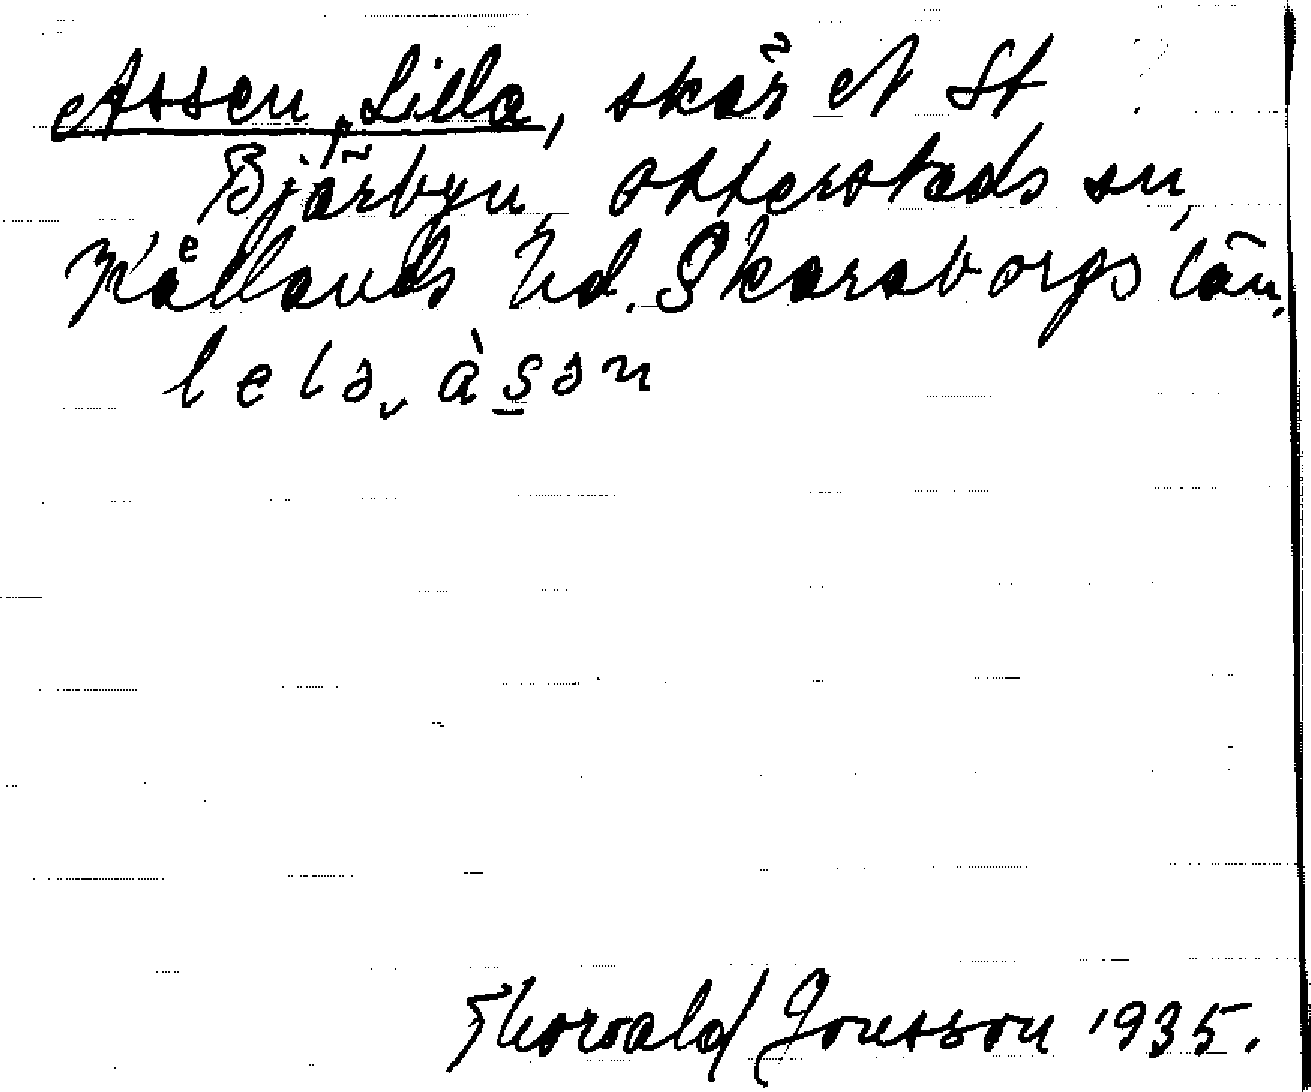 Assen, Lilla, skär N St
Bjärbyn, Otterstads sn,
Kållands hd. Skaraborgs län,
lela, àssn
Thorvald Jonsson 1935.